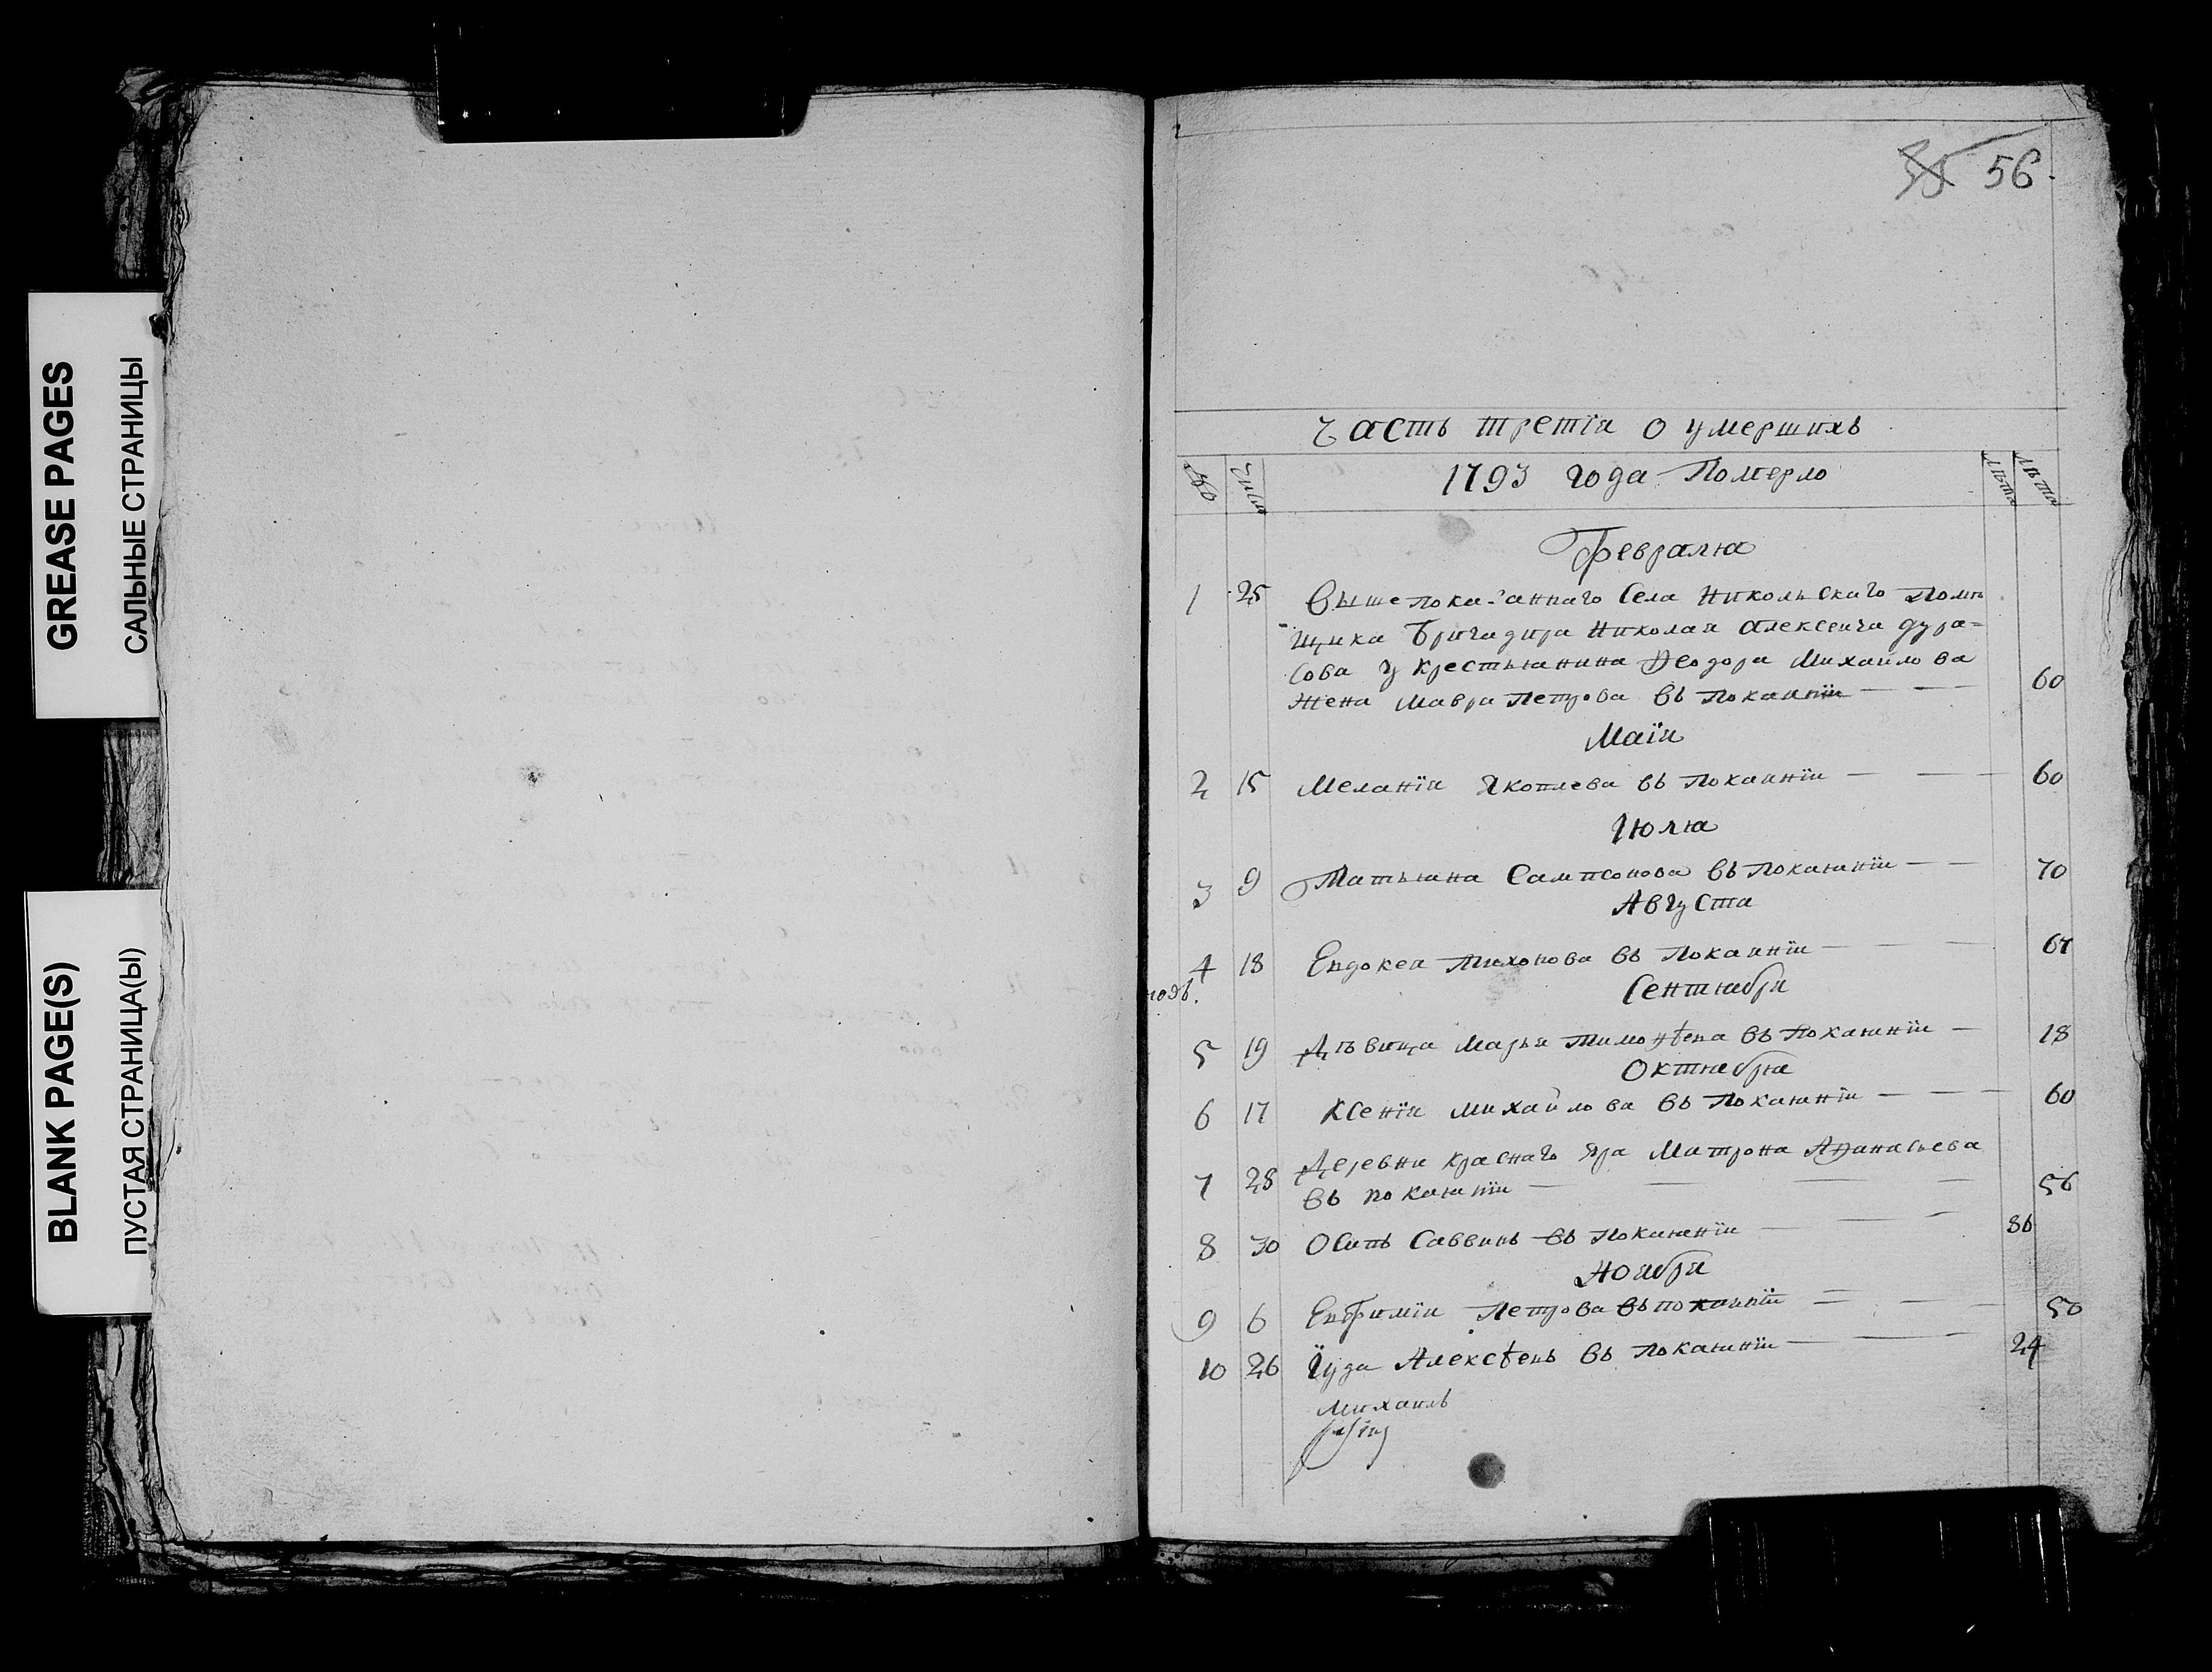 GREASE PAGES
САЛЬНЫЕ СТРАНИЦЫ
BLANK PAGE(S)
ПУСТАЯ СТРАНИЦА(Ы)
56.
Часть третія о умершихъ
1793 года Померло
лѣта лѣта
Февраля
1 25 Вышепоказаннаго Села Никольскаго Поме
щика Бригадира Николая Алексеича Дура=
сова у крестьянина Ѳеодора Михайлова
жена Мавра Петрова въ Покаяніи 60
Маія
2 15 Меланія Яковлева въ Покаяніи 60
Июля
3 9 Татьяна Сампсонова въ Покаяніи 70
Августа
4 18 Евдокея Тихонова въ Покаяніи
Сентября
5 19 Дѣвица Марья Тимоѳѣева въ Покаяніи 18
Октября
6 17 Ксенія Михайлова въ Покаяніи 60
7 28 Деревни краснаго Яра Матрона Аѳанасьева
въ покаяніи 56
8 30 Осипъ Саввинъ въ Покаяніи 86
Ноября
9 6 Евфимія Петрова въ покаяніи 50
10 26 Іуда Алексѣевъ въ Покаяніи 24
Михаилъ